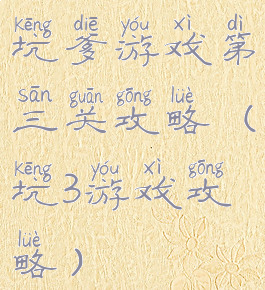 kēng diē yóu xì dì
坑爹游戏第
sān guān gōng lüè
三关攻略（
kēng yóu xì gōng
坑3游戏攻
lüè
略）